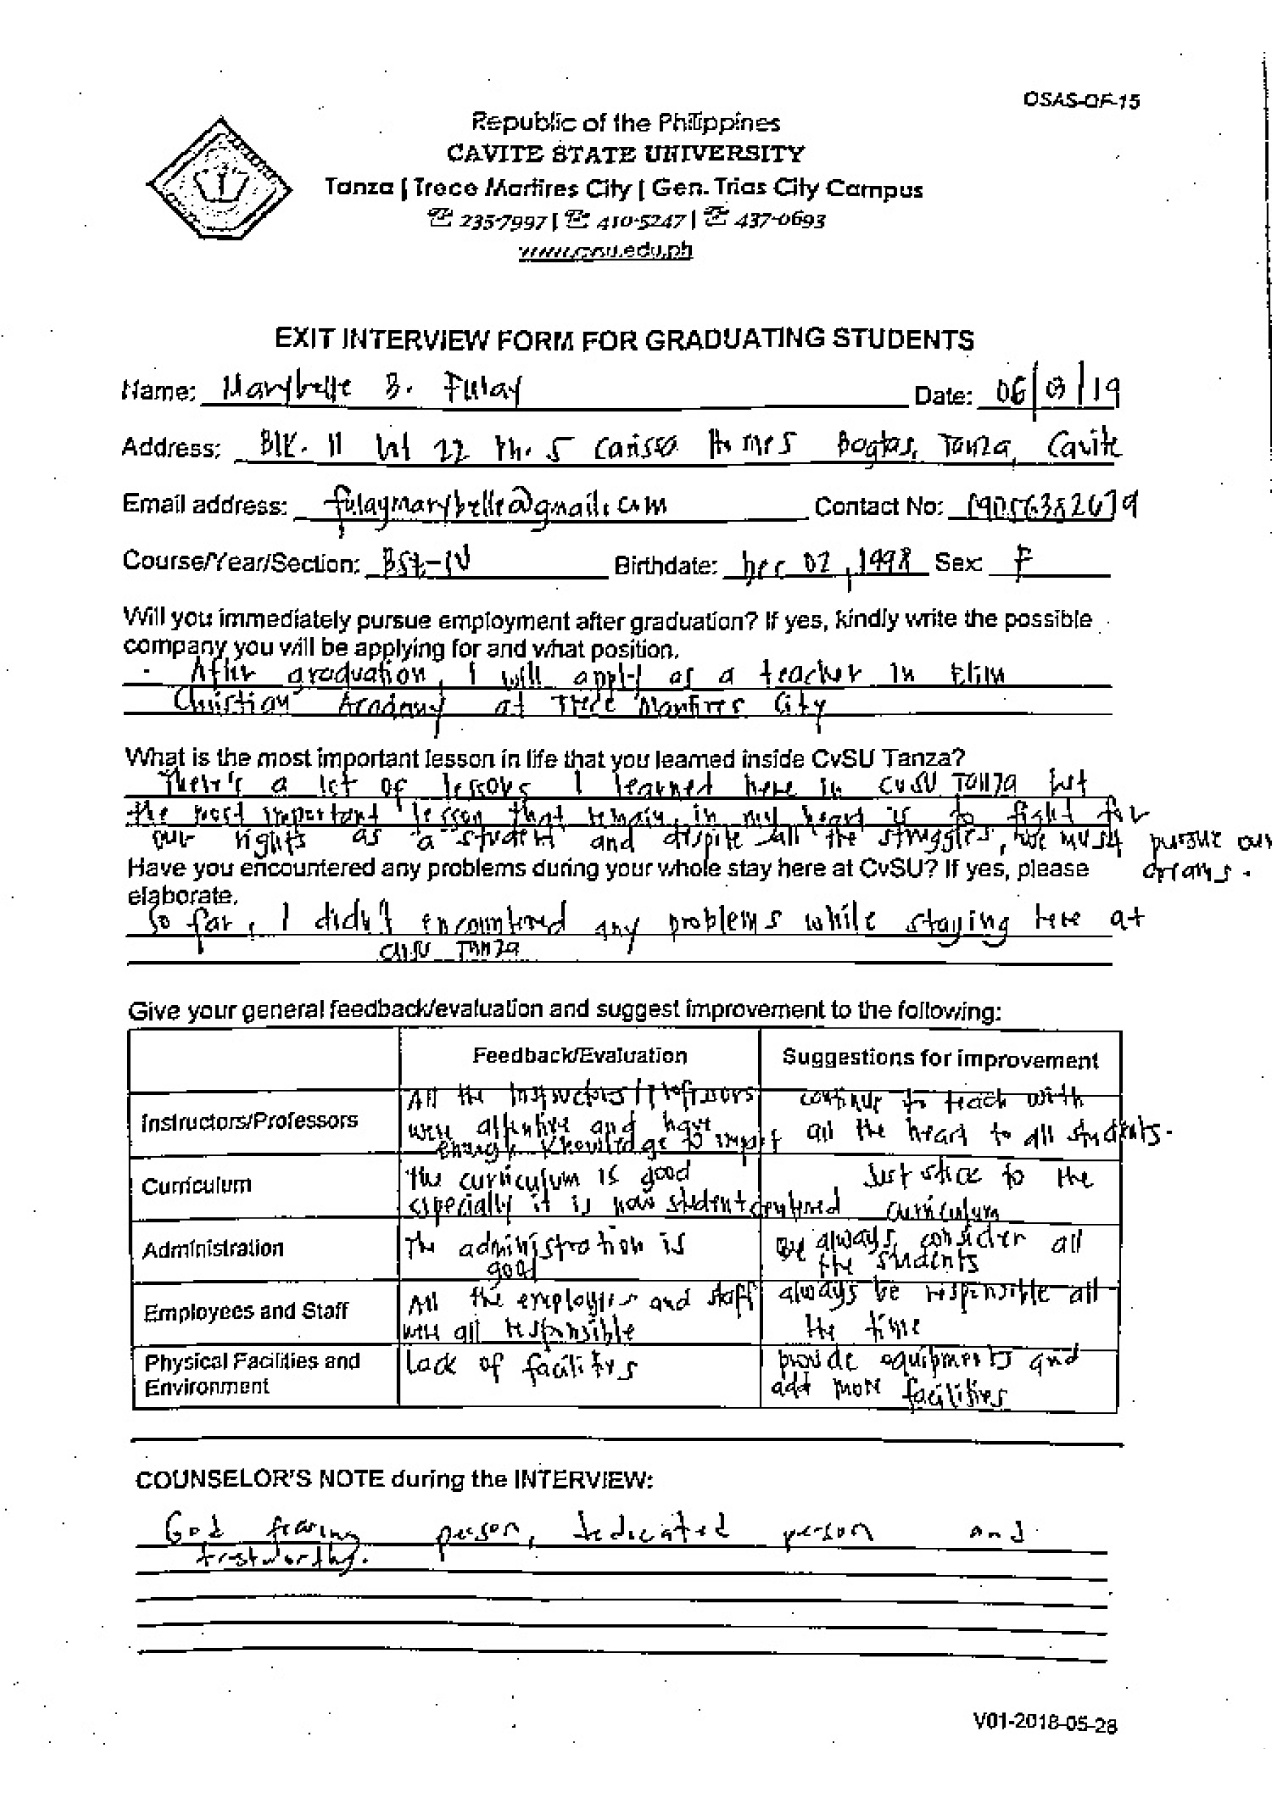 OSAS-OF-15
Republic of the Philippines
CAVITE STATE UNIVERSITY
Tanza | Trece Martires City | Gen. Trias City Campus
☎ 235-7997 | ☎ 410-5247 | ☎ 437-0693
www.cvsu.edu.ph
EXIT INTERVIEW FORM FOR GRADUATING STUDENTS
Name: Marybelle B. Fulay Date: 06/03/19
Address: Blk. 11 lot 22 Ph. 5 Carissa Homes Bagtas, Tanza, Cavite
Email address: fulaymarybelle@gmail.com Contact No:
Course/Year/Section: BSE-IV Birthdate: Dec 02, 1998 Sex: F
Will you immediately pursue employment after graduation? If yes, kindly write the possible
company you will be applying for and what position.
- After graduation, I will apply as a teacher in Elim
Christian Academy at Trece Martires City
What is the most important lesson in life that you learned inside CvSU Tanza?
There's a lot of lessons I learned here in CvSU TANZA but
the most important lesson that remain in my heart is to fight for
our rights as a student and despite all the struggles, we must pursue our
dreams.
Have you encountered any problems during your whole stay here at CvSU? If yes, please
elaborate.
So far, I didn't encountered any problems while staying here at
CvSU TANZA
Give your general feedback/evaluation and suggest improvement to the following:
Feedback/Evaluation Suggestions for improvement
Instructors/Professors
All the Instructors/Professors
were attentive and have
enough knowledge to impart
continue to teach with
all the heart to all students.
Curriculum
The curriculum is good
especially it is now student centered
Just stick to the
curriculum
Administration
The administration is
good
Be always consider all
the students
Employees and Staff
All the employees and staff
were all responsible
always be responsible all
the time
Physical Facilities and
Environment
Lack of facilitys
provide equipments and
add more facilities
COUNSELOR'S NOTE during the INTERVIEW:
God fearing person, dedicated person and
trustworthy.
V01-2018-05-28